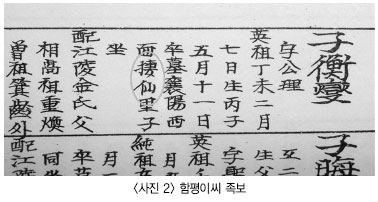 子衡燮
字公理
英祖丁未二月
七日生丙子
五月十一日
卒墓襄陽西
面捿仙里子
坐
配江陵金氏父
相高祖重煥
曾祖箕齡外
子晦
生父
英祖
純祖
月一
配江陵
<사진 2> 함평이씨 족보